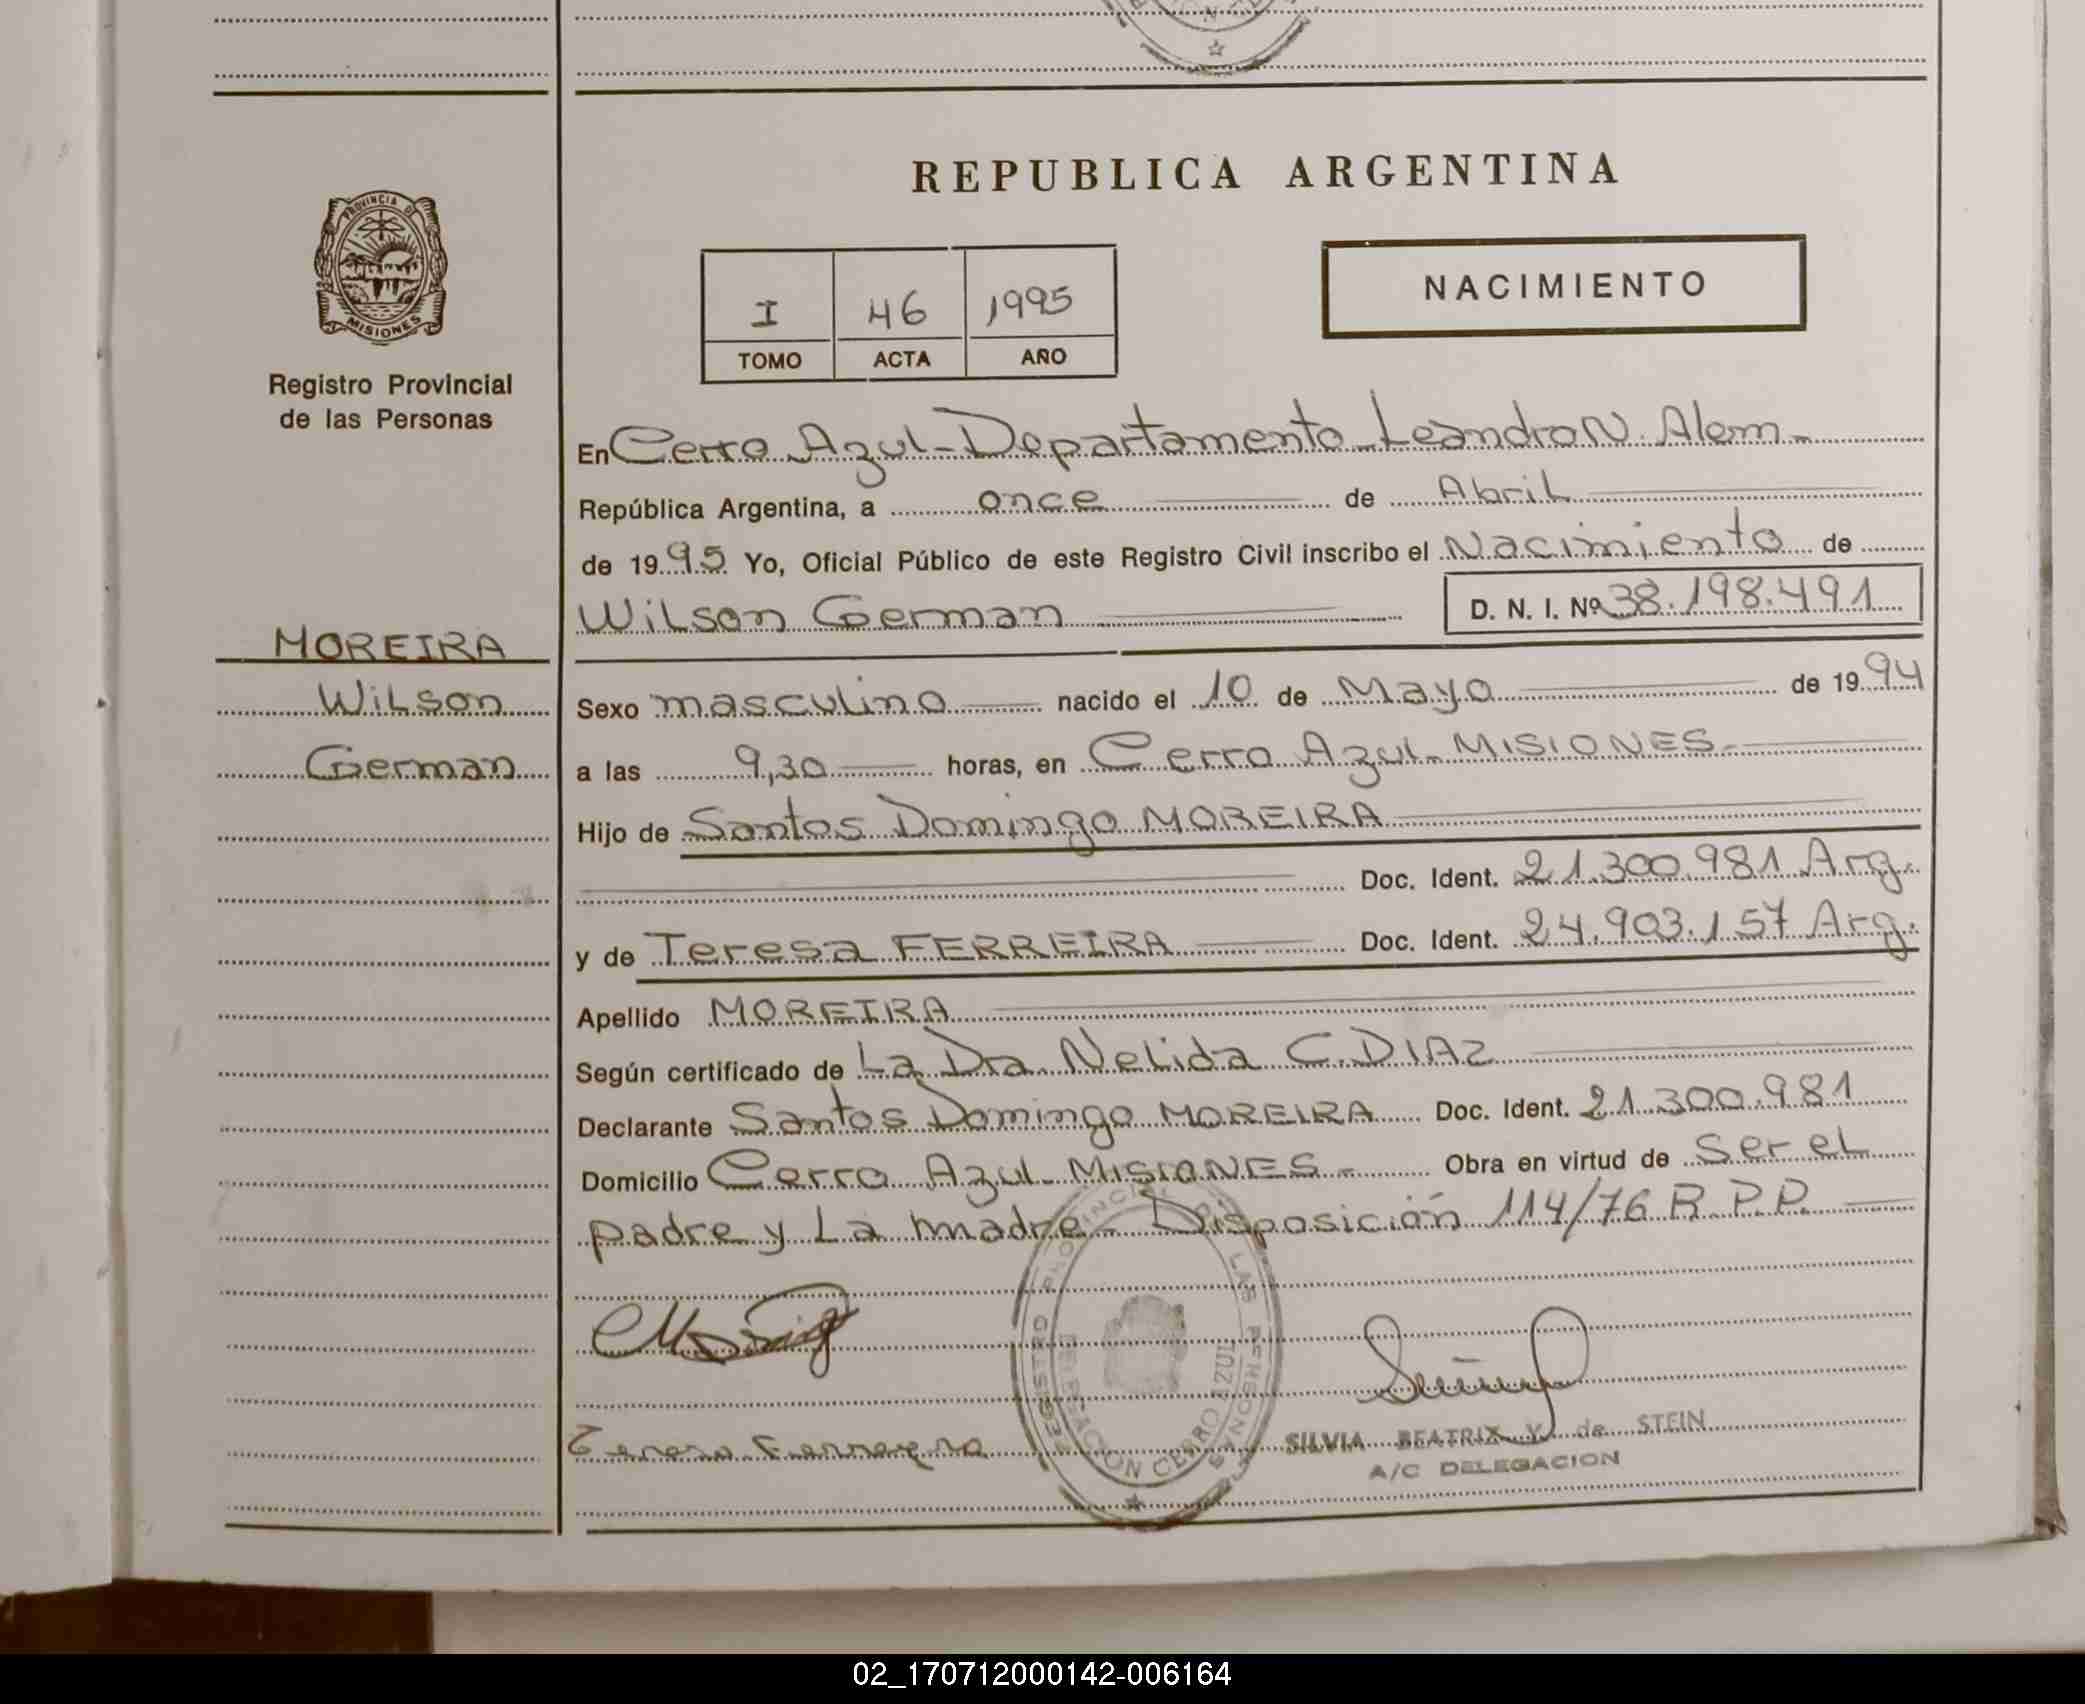 REPUBLICA ARGENTINA
PROVINCIA DE
MISIONES
Registro Provincial
de las Personas
NACIMIENTO
I 46 1995
TOMO ACTA AÑO
En Cerro Azul - Departamento Leandro N. Alem -
República Argentina, a once de Abril
de 1995 Yo, Oficial Público de este Registro Civil inscribo el Nacimiento de
Wilson German D. N. I. Nº 38.198.491
MOREIRA
Wilson
German
Sexo masculino nacido el 10 de Mayo de 1994
a las 9,30 horas, en Cerro Azul - MISIONES -
Hijo de Santos Domingo MOREIRA
Doc. Ident. 21.300.981 Arg.
y de Teresa FERREIRA Doc. Ident. 24.903.157 Arg.
Apellido MOREIRA
Según certificado de La Dra. Nelida C. DIAZ
Declarante Santos Domingo MOREIRA Doc. Ident. 21.300.981
Domicilio Cerro Azul - MISIONES - Obra en virtud de ser el
padre y La madre - Disposición 114/76 R.P.P.
REGISTRO PROVINCIAL DE LAS PERSONAS
DELEGACION CERRO AZUL
Teresa Ferreyra
SILVIA BEATRIX V. de STEIN
A/C DELEGACION
02_170712000142-006164